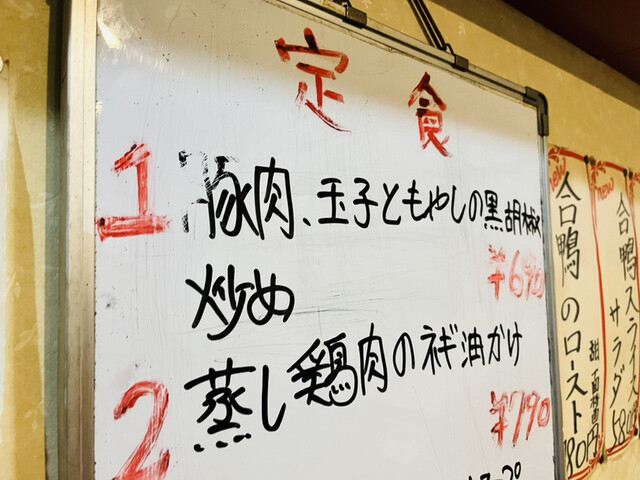 定食
1 豚肉、玉子ともやしの黒胡椒
炒め
¥690
2 蒸し鶏肉のネギ油かけ
¥790
new
合鴨のロースト
80円
new
合鴨スライス
サラダ
580